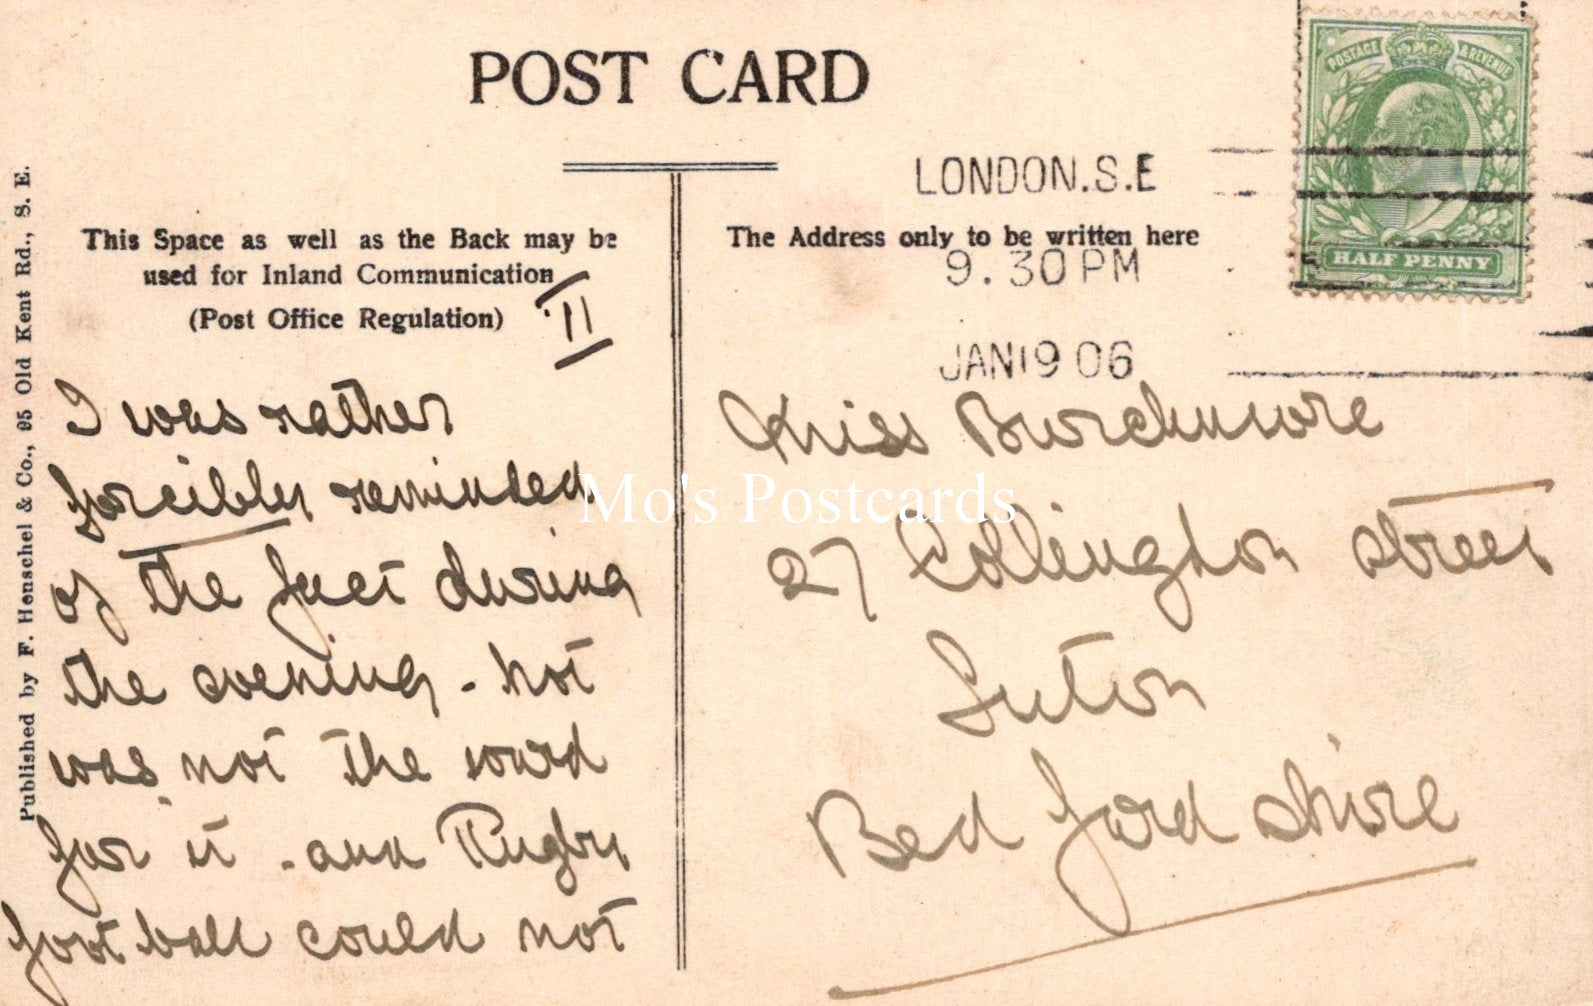 POST CARD
POSTAGE & REVENUE
HALF PENNY
LONDON.S.E
9.30PM
JAN 19 06
5
This Space as well as the Back may be
used for Inland Communication
(Post Office Regulation)
The Address only to be written here
II
I was rather
forcibly reminded
of the fact during
the evening - hot
was not the word
for it - and Rugby
football could not
Miss Burchmore
27 Collingdon street
Luton
Bedfordshire
Published by F. Henschel & Co., 95 Old Kent Rd., S. E.
Mo's Postcards